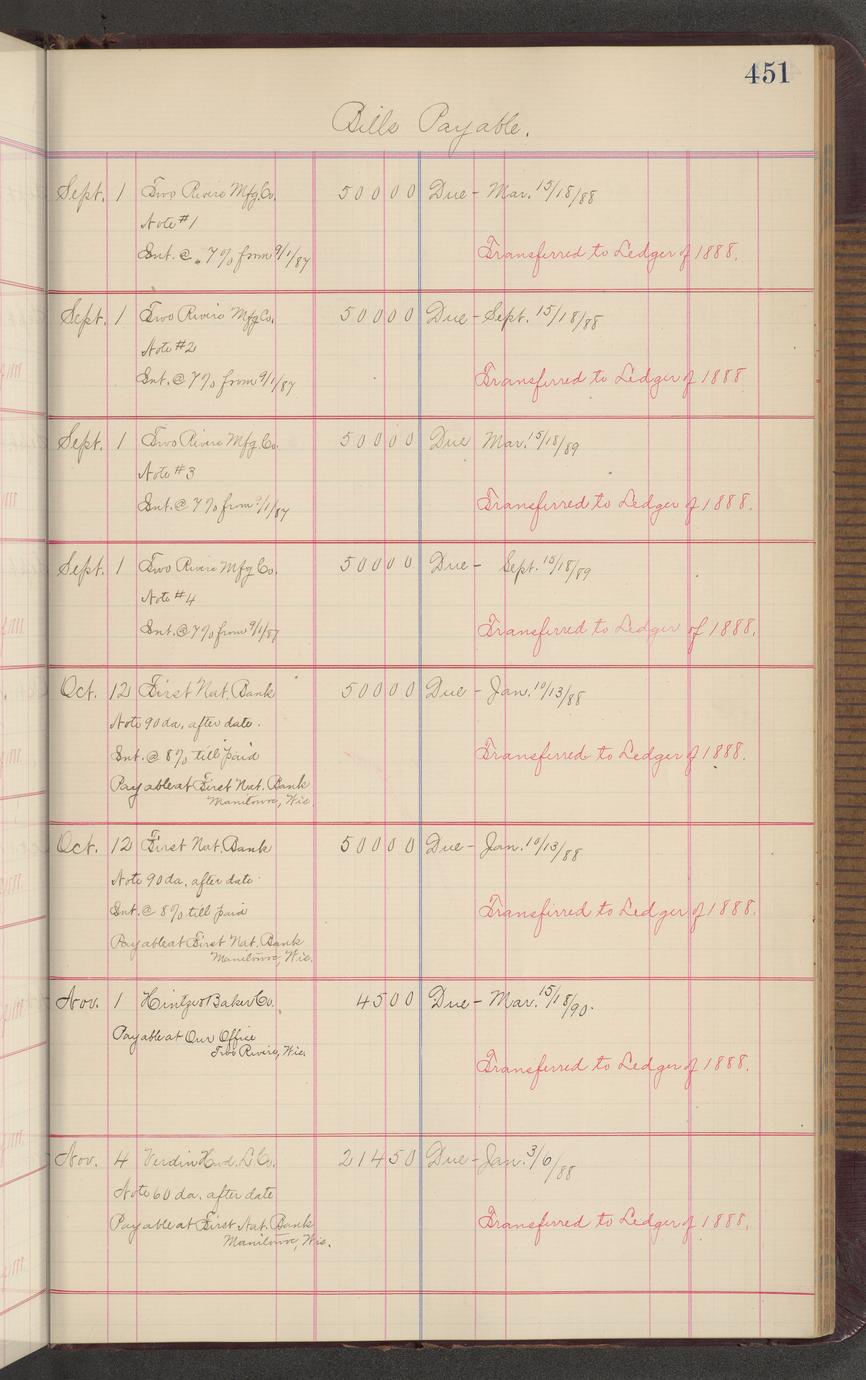 451
Bills Payable.
Sept. 1 Two Rivers Mfg. Co. 50000 Due - Mar. 15/18/88
Note #1
Int. @ 7% from 9/1/87 Transferred to Ledger of 1888.
Sept. 1 Two Rivers Mfg Co. 50000 Due - Sept. 15/18/88
Note #2
Int. @ 7% from 9/1/87 Transferred to Ledger of 1888
Sept. 1 Two Rivers Mfg. Co. 50000 Due Mar. 15/18/89
Note #3
Int. @ 7% from 9/1/87 Transferred to Ledger of 1888.
Sept. 1 Two Rivers Mfg Co. 50000 Due - Sept. 15/18/89
Note #4
Int. @ 7% from 9/1/87 Transferred to Ledger of 1888.
Oct. 12 First Nat. Bank 50000 Due - Jan. 10/13/88
Note 90 da. after date.
Int. @ 8% till paid Transferred to Ledger of 1888.
Payable at First Nat. Bank
Manitowoc, Wis.
Oct. 12 First Nat. Bank 50000 Due - Jan. 10/13/88
Note 90 da. after date
Int. @ 8% till paid Transfirred to Ledger of 1888.
Payable at First Nat. Bank
Manitowoc, Wis.
Nov. 1 Baker Co. 4500 Due - Mar. 15/18/90.
Payable at Our Office
Two Rivers, Wis.
Transferred to Ledger of 1888.
Nov. 4 21450 Due - Jan. 3/6/88
Note 60 da. after date
Payable at First Nat. Bank Transferred to Ledger of 1888.
Manitowoc, Wis.